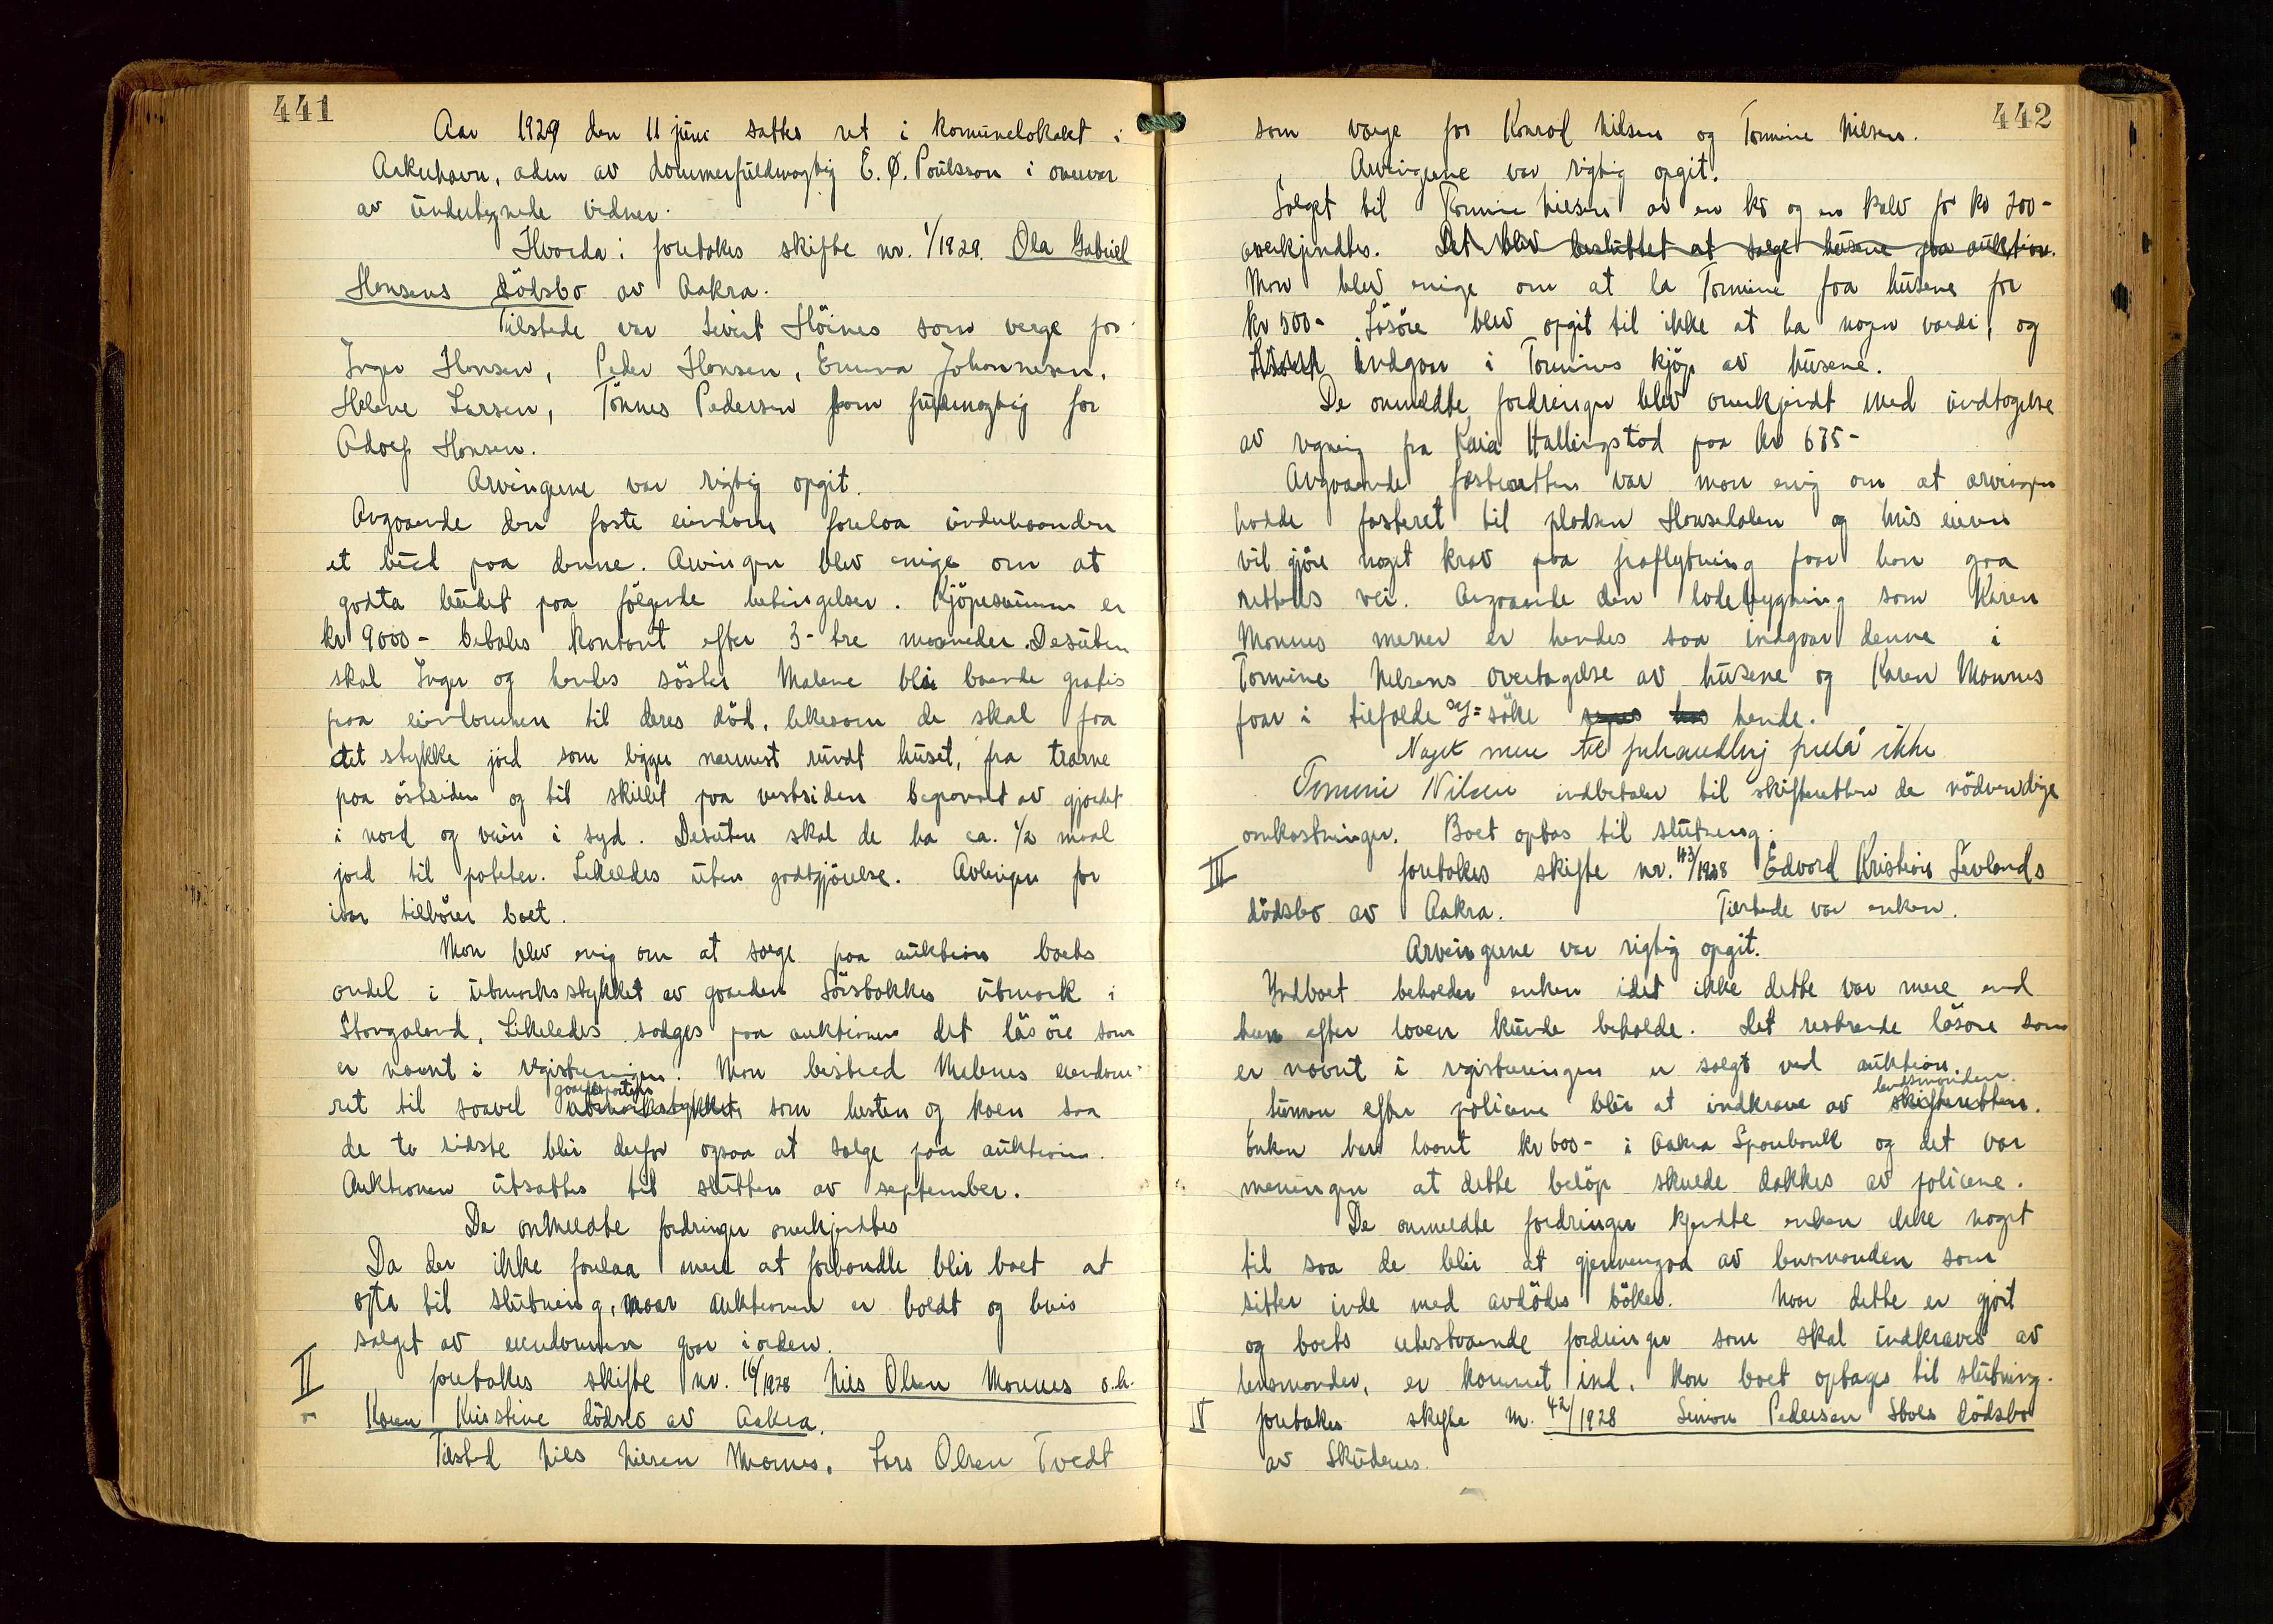 441
Aar 1929 den 11 juni sattes ret i komunelokalet i
Aakrehavn, aden av dommerfuldmægtig E. Ø. Poulsson i overvær
av undertegnede vidner.
Hvorda: foretokes skifte nr. 1/1929. Ola Gabriel
Hansens dödsbo av Aakra.
Tilstede var Sivert Höines som verge for
Inger Hansen, Peder Hansen, Emma Johannesen,
Helene Larsen, Tönnes Pedersen som fuldmægtig for
Adolf Hansen.
Arvingerne var rigtig opgit.
Angaaende den faste eiendom forelaa underhaanden
et bud paa denne. Arvingen blev enige om at
godta budet paa følgende betingelser. Kjöpesummen er
kr 9000- betales kontant efter 3- tre maaneder. Desuten
skal Inger og hendes söster Malene bli boende gratis
paa eiendommen til deres död, likesom de skal faa
det stykke jord som ligger nærmest rundt huset, fra trærne
paa östsiden og til skillet paa vestsiden begrænset av gjærdet
i nord og veien i syd. Desuten skal de ha ca. 1/2 maal
jord til poteter. Likeledes uten godtgjörelse. Avlingen for
iaar tilhörer boet.
Man blev enig om at sælge paa auktion boets
andel i utmarksstykket av gaarden Sörstokkes utmark i
Stangaland. Likeledes sælges paa auktionen det lösöre som
er nævnt i registreringen. Man bestred Malenes eiendoms-
ret til saavel gaardsparten utmarksstykket som hesten og koen saa
de to sidste blir derfor ogsaa at sælge paa auktion.
Auktionen utsættes til slutten av september.
De anmeldte fordringer anerkjendtes
Da der ikke forelaa mere at forhandle blir boet at
opta til slutning, naar auktionen er holdt og hvis
salget av eiendommen gaar i orden.
II foretokes skifte nr. 16/1928 Nils Olsen Mannes o.h.
Karen Kristine dödsbo av Aakra.
Tilsted Nils Nilsen Mannes, Lars Olsen Tvedt
442
som verge for Konrad Nilsen og Tomine Nilsen.
Arvingerne var rigtig opgit.
Salget til Tomine Nilsen av en ko og en kalv for kr 200-
anerkjendtes. Det blev besluttet at sælge husene paa auktion.
Man blev enige om at la Tomine faa husene for
kr 500- Lösöre blev opgit til ikke at ha nogen værdi, og
indgaar i Tomines kjöp av husene.
De anmeldte fordringer blev anerkjendt med undtagelse
av regning fra Kaia Hallingstad paa kr 675-
Angaaende festeretten var man enig om at arvingen
hadde festeret til pladsen Hansedalen og hvis eieren
vil gjöre noget krav paa fraflytning faar han gaa
rettens vei. Angaaende den lodebygning som Karen
Mannes mener er hendes saa indgaar denne i
Tomine Nilsens overtagelse av husene og Karen Mannes
faar i tilfælde sög-söke hende.
Noget mere til forhandling forelå ikke
Tomine Nilsen indbetaler til skifteretten de nödvendige
omkostninger. Boet optas til slutning.
III foretokes skifte nr. 43/1928 Edvard Kristian Sevlands
dödsbo av Aakra. Tilstede var enken.
Arvingerne var rigtig opgit.
Indboet beholder enken idet ikke dette var mere end
hun efter loven kunde beholde. Det resterende lösöre som
er nævnt i registreringen er solgt ved auktion
Summen efter policene blir at indkræve av lensmanden. skifteretten.
Enken har laant kr 600- i Aakra Sparebank og det var
meningen at dette belöp skulde dækkes av policene.
De anmeldte fordringer kjendte enken ikke noget
til saa de blir at gjennemgaa av lensmanden som
sitter inde med avdödes böker. Naar dette er gjort
og boets utestaaende fordringer som skal indkræves av
lensmanden, er kommet ind, kan boet optages til slutning.
IV foretokes skifte nr. 42/1928 Simon Pedersen Stols dödsbo
av Skudenes.